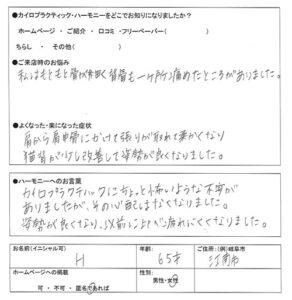 ●カイロプラクティック・ハーモニーをどこでお知りになりましたか？
ホームページ ・ ご紹介 ・ 口コミ ・フリーペーパー(　　　)
ちらし ・ その他(　　　)
●ご来店時のお悩み
私はもともと骨が細く背骨も一ヶ所痛めたところがありました。
●よくなった・楽になった症状
肩から肩甲骨にかけて張りが取れて楽かくなり
猫背が少し改善して姿勢が良くなりました。
●ハーモニーへのお言葉
カイロプラクティックにちょっと怖いような不安が
ありましたが、その心配はなくなりました。
姿勢が良くなり、以前により疲れにくくなりました。
お名前(イニシャル可)
H
年齢:
65才
ご住所:(例)岐阜市
江南市
ホームページへの掲載
可 ・ 不可 ・ 匿名であれば
性別:
男性・女性